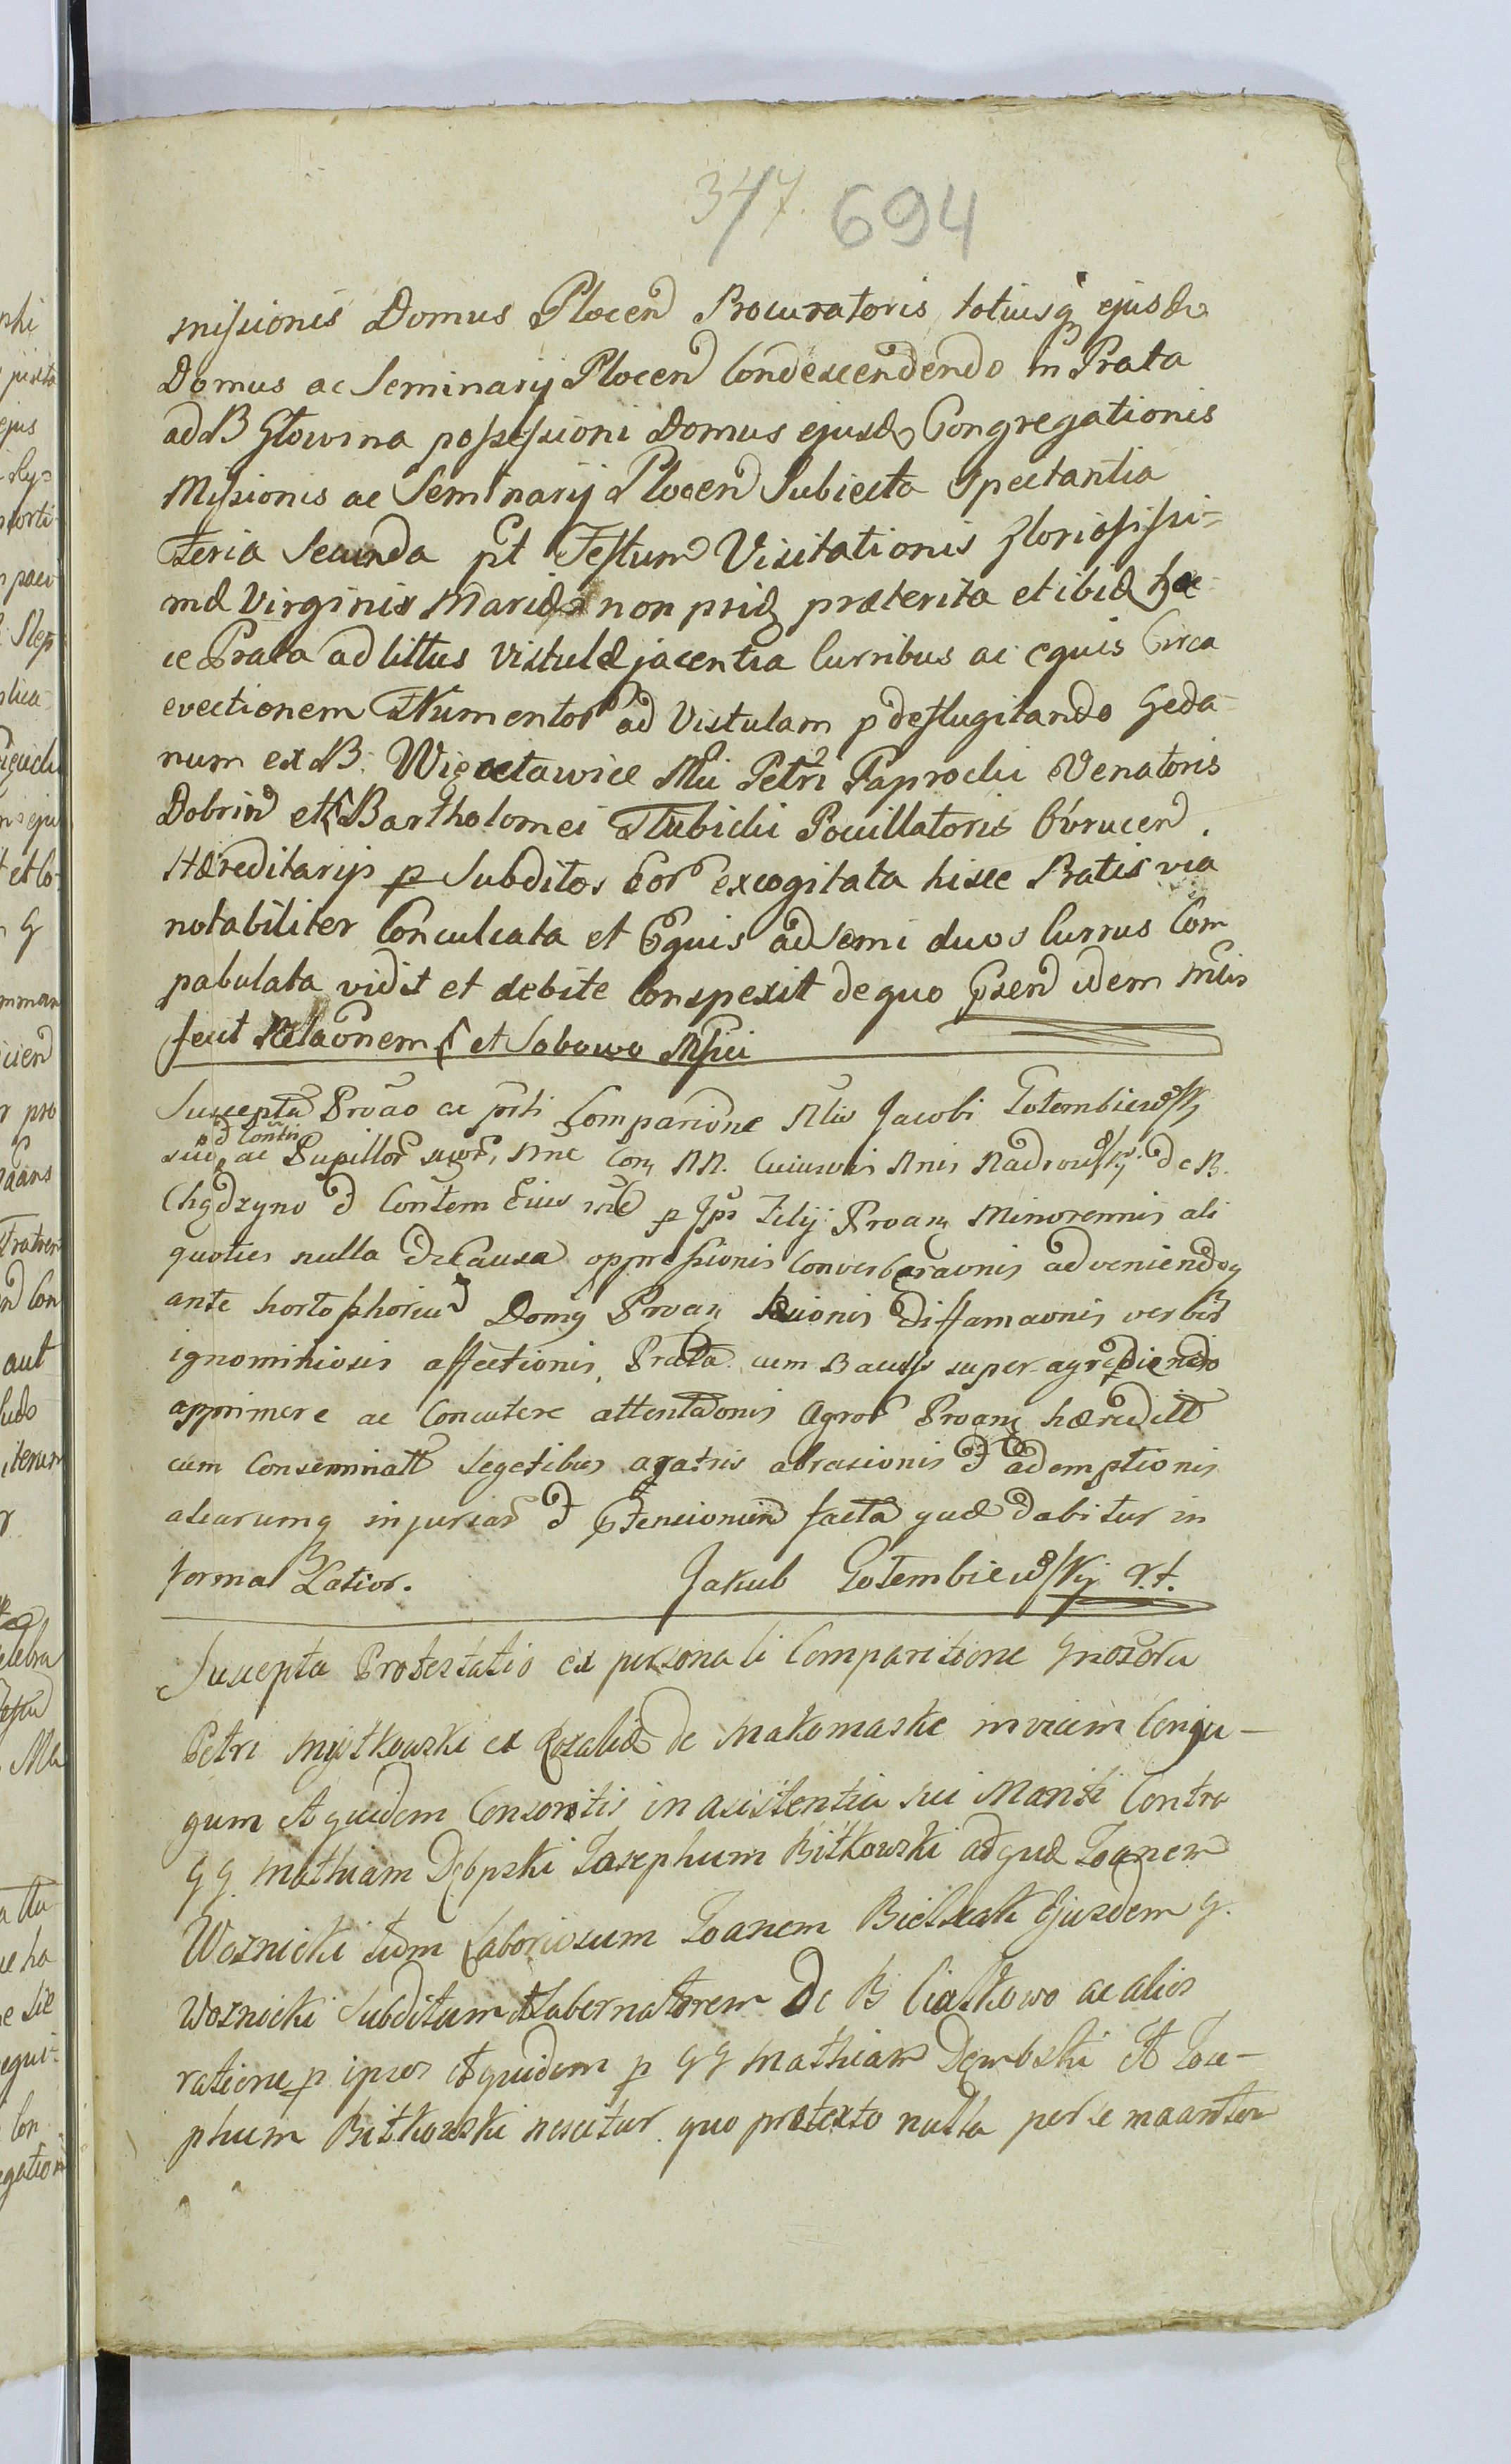 347. 694
missionis Domus Plocen Procuratoris totiusq ejusde
Domus ac Seminarij Plocen Condescendendo in Prata
ad B Głowina possessioni Domus ejusde Congregationis
Missionis ac Seminarij Plocen Subiecta Spectantia
Feria Secunda pt Festum Visitationis Gloriosissi-
mæ Virginis Mariæ non prid præterita et ibid hæ-
ce Prata ad littus Vistulæ jacentia Curribus ac equis Circa
evectionem Frumentor ad Vistulam p deflugitando Geda-
num ex B. Więcławice Petri Paprocki Venatoris
Dobrin et Bartholomei Pocillatoris Ovrucen.
Hæreditarijs p Subditos Eor excogitata hisce Pratis via
notabiliter Conculcata et Equis ad semi duos Currus Com
pabulata vidit et debite Conspexit de quo Psen idem Mlis
fecit Relaonem et Sobowo
Suscepta Proão ac prli Comparione Jacobi Gołembiewsky
suo d Contis ac Pupillor suor, Cuiusvis Nadrowsky de B.
Chądzyno d Contem Eius p Ips Filij Proan Minorennis ali
quoties nulla De Causa oppressionis Converberaonis adveniendo
ante horto Domy Proan diffamaonis verbis
ignominiosis affectionis, Prata cum super agrediendo
apprimere ac Concutere attentaonis Agror Proan hæreditt
cum Conseminatt Segetibus aratris abrasionis d ademptionis
aliarumq injuriar d Ptensionum facta quæ dabitur in
forma Latior. Jakub Gołembiewsky
Suscepta Protestatio ex personali Comparitione Gnosoru
Petri Myśtkowski et Rozaliæ de Makomaskie invicem Conju-
gum Et quidem Consortis in asistentia sui Mariti Contra
GG. Mathiam Dębski Josephum Bitkowski adquæ Joanem
Woznicki tum Laboriosum Joanem Bielszak Ejusdem G.
Woznicki Subditum Tabernatorem De B Ciaćkowo ac alios
ratione p ipsos et quidem p GG Mathiam Dembski Et Jose-
phum Bitkowski nescitur quo prætexto nulla per se